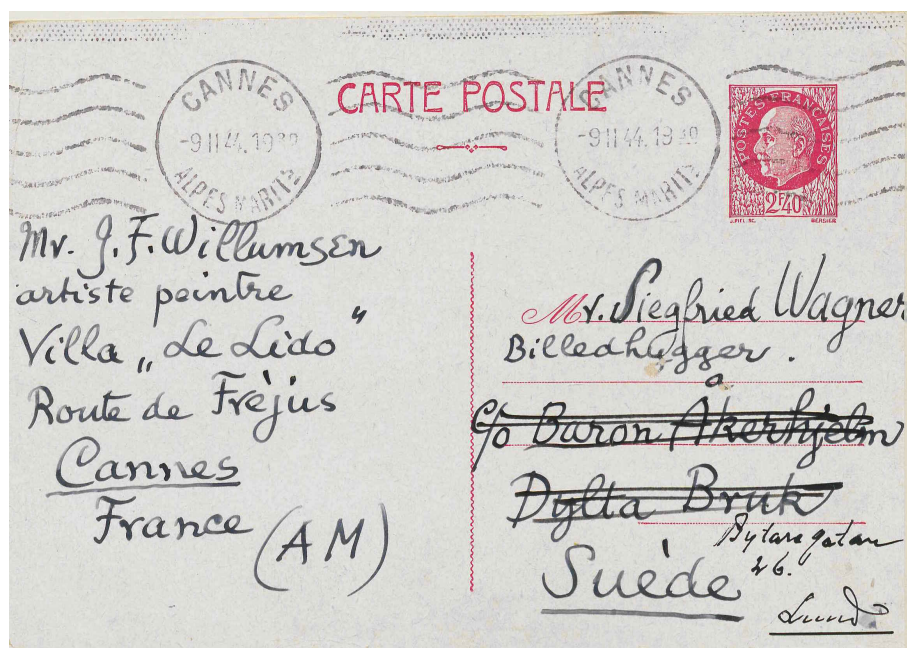 CANNES
-9 II 44. 19 30
ALPES MARITS
CARTE POSTALE
CANNES
-9 II 44. 19 30
ALPES MARITS
POSTES FRANÇAISES
2F40
BERSIER
Mr. J. F. Willumsen
artiste peintre
Villa „Le Lido"
Route de Fréjus
Cannes
France
(AM)
Mr. Siegfried Wagner
Billedhugger.
c/o Baron Åkerhjelm
Dylta Bruk
Bytaregatan
26.
Suède
Lund